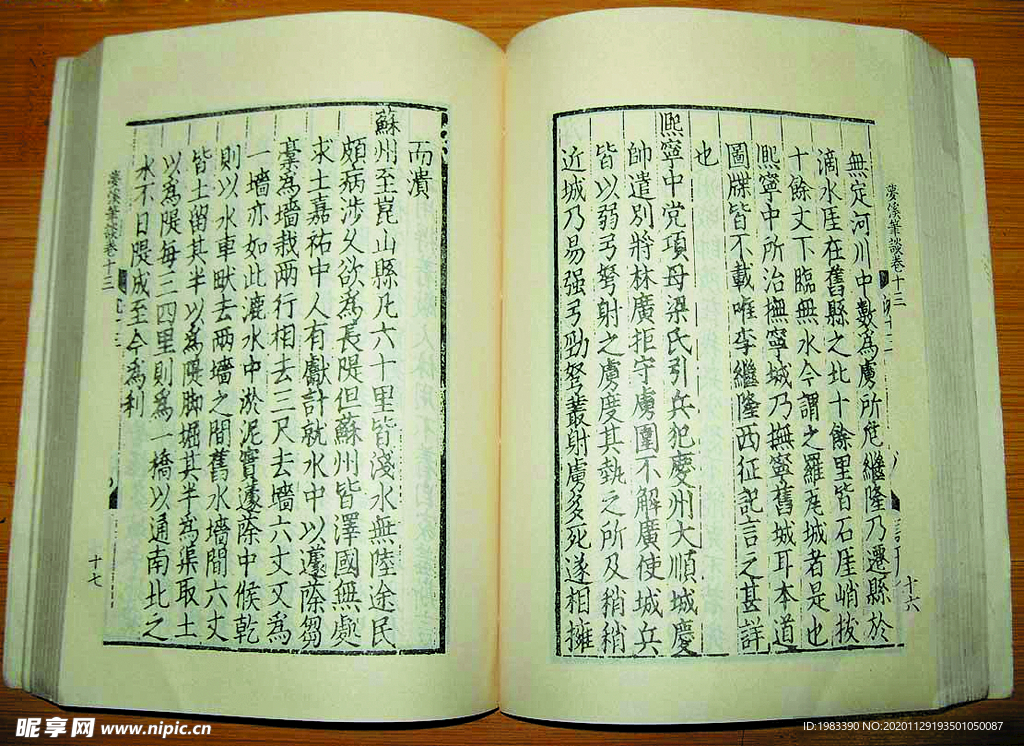 夢溪筆談卷十三
無定河川中數為虜所危繼隆乃遷縣於
滴水厓在舊縣之北十餘里皆石厓峭拔
十餘丈下臨無水今謂之羅兀城者是也
熙寧中所治撫寧城乃撫寧舊城耳本道
圖牒皆不載唯李繼隆西征記言之甚詳
也
熙寧中党項母梁氏引兵犯慶州大順城慶
帥遣別將林廣拒守虜圍不解廣使城兵
皆以弱弓弩射之虜度其執之所及稍稍
近城乃易强弓勁弩叢射虜多死遂相擁
十六
而潰
蘇州至崑山縣凡六十里皆淺水無陸途民
頗病涉久欲為長隄但蘇州皆澤國無處
求土嘉祐中人有獻計就水中以蘧蒢芻
稾為墻栽兩行相去三尺去墻六丈又為
一墻亦如此漉水中淤泥實蘧蒢中候乾
則以水車畎去兩墻之間舊水墻間六丈
皆土留其半以為隄脚掘其半為渠取土
以為隄每三四里則為一橋以通南北之
水不日隄成至今為利
夢溪筆談卷十三
十七
昵享网 www.nipic.cn
ID:1983390 NO:20201129193501050087